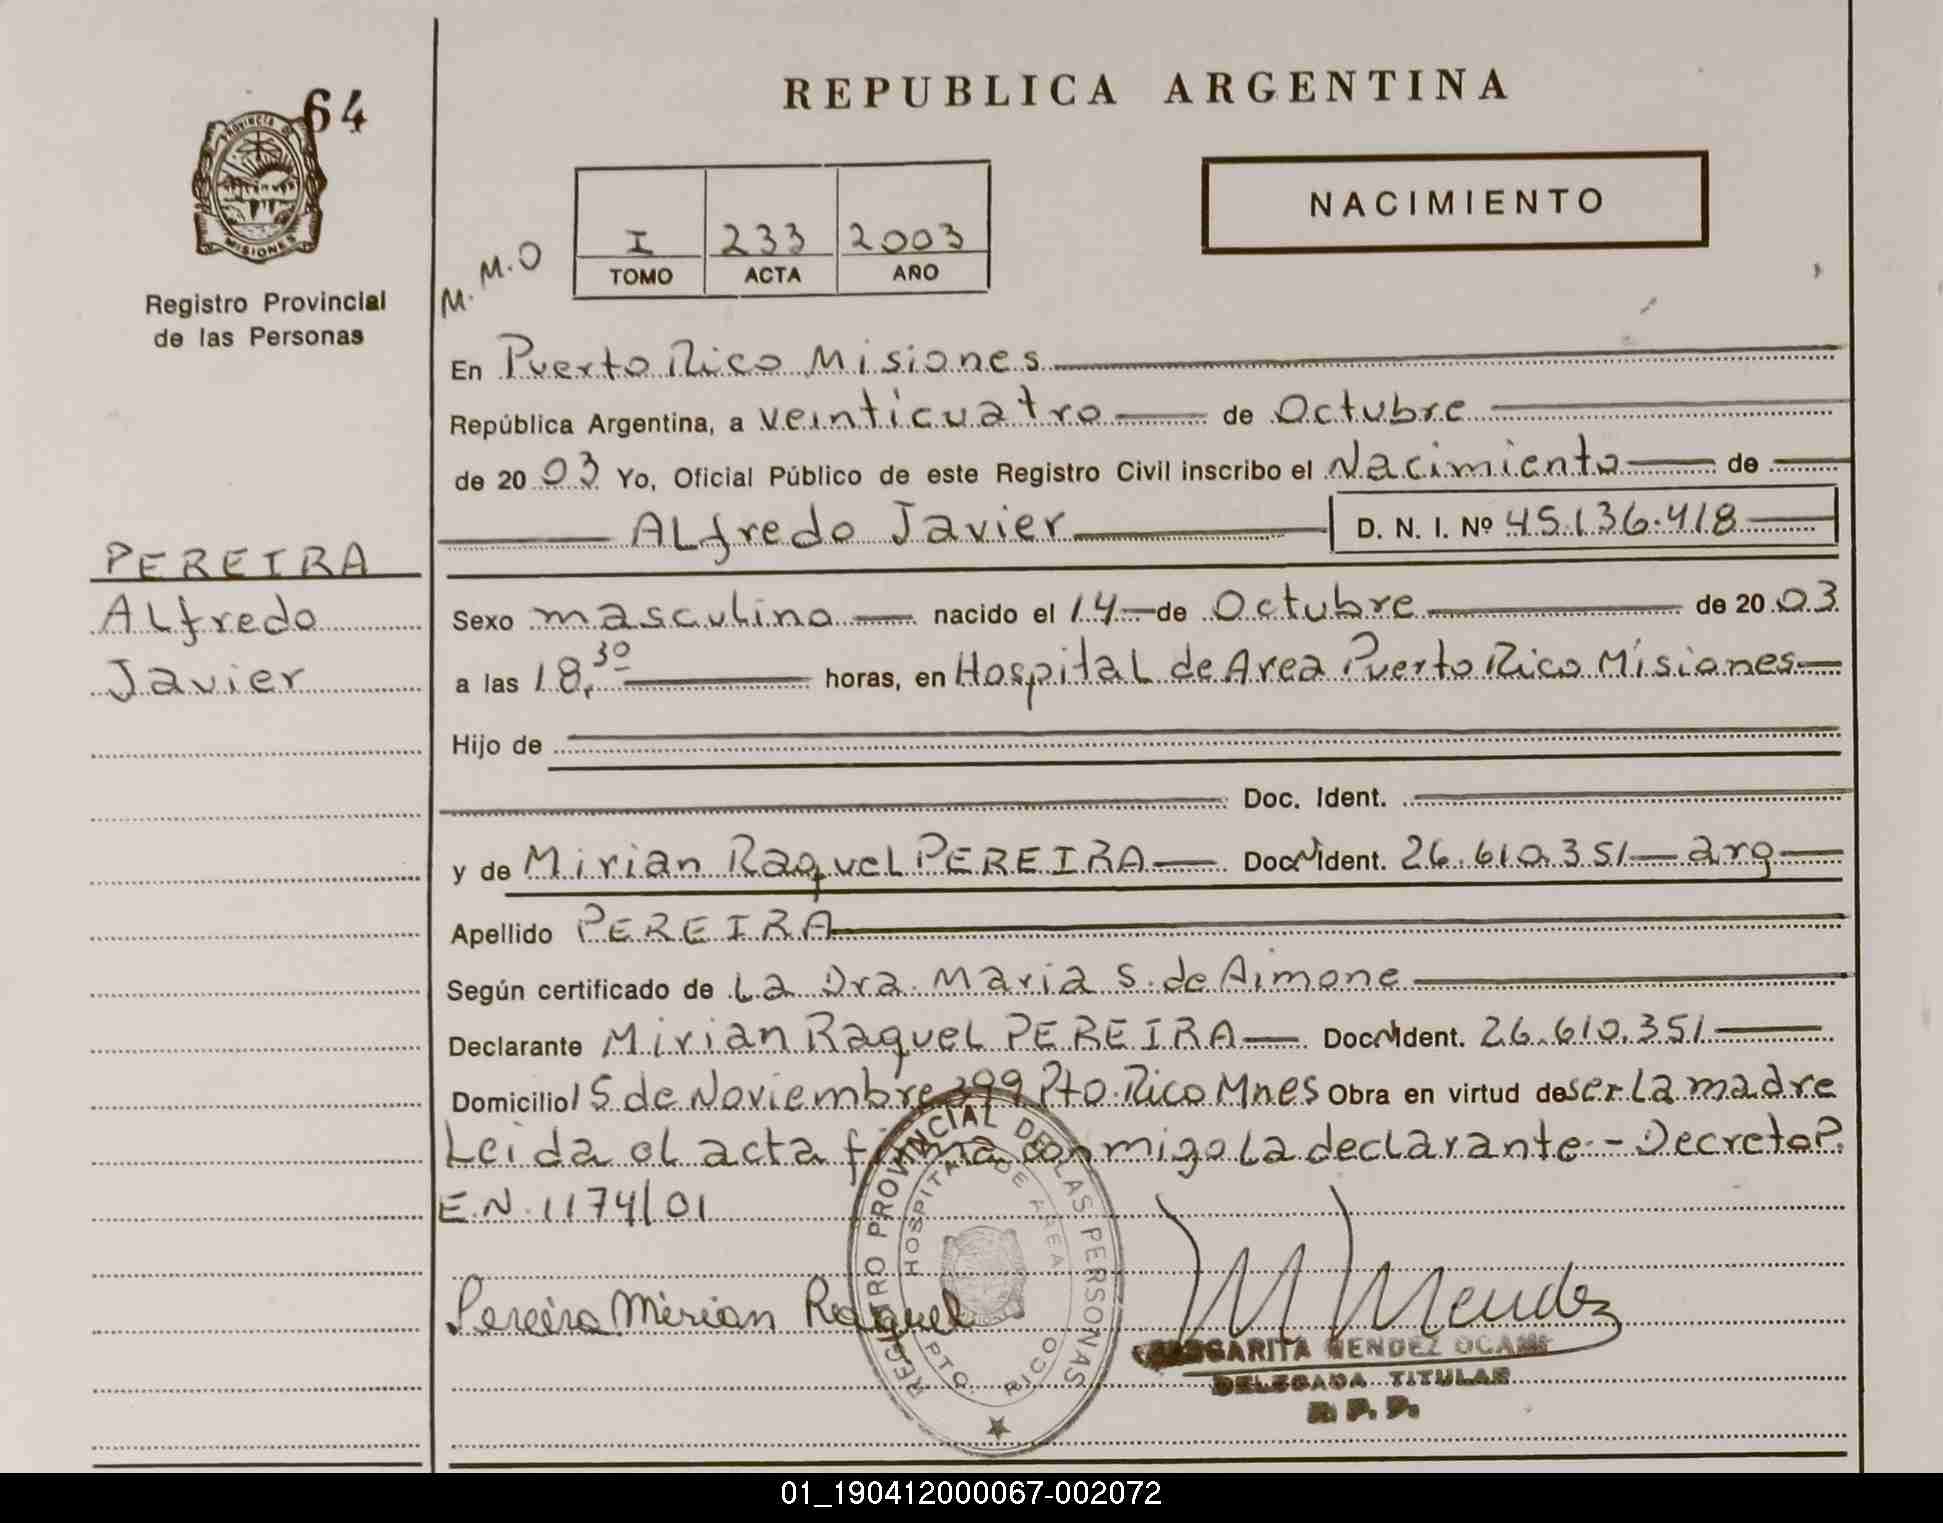 REPUBLICA ARGENTINA
64
PROVINCIA DE
MISIONES
Registro Provincial
de las Personas
I 233 2003
TOMO ACTA AÑO
NACIMIENTO
M. M.O
PEREIRA
ALfredo
Javier
En Puerto Rico Misiones
República Argentina, a veinticuatro de Octubre
de 2003 Yo, Oficial Público de este Registro Civil inscribo el Nacimiento de
ALfredo Javier D. N. I. Nº 45.136.418
Sexo masculino nacido el 14 de Octubre de 2003
a las 18,30 horas, en HospitaL de Area Puerto Rico Misiones
Hijo de
Doc. Ident.
y de Mirian RaqueL PEREIRA Doc. Ident. 26.610.351 arg
Apellido PEREIRA
Según certificado de La Dra. Maria S. de Aimone
Declarante Mirian RaqueL PEREIRA Doc. Ident. 26.610.351
Domicilio 15 de Noviembre 399 Pto. Rico Mnes Obra en virtud de ser La madre
Leida el acta firma conmigo La declarante.- Decreto P.
E.N. 1174/01
Pereira Mirian Raquel
REGISTRO PROVINCIAL DE LAS PERSONAS
HOSPITAL DE AREA
PTO. RICO
M Mendez
MARGARITA MENDEZ OCAMPO
DELEGADA TITULAR
R. P. P.
01_190412000067-002072